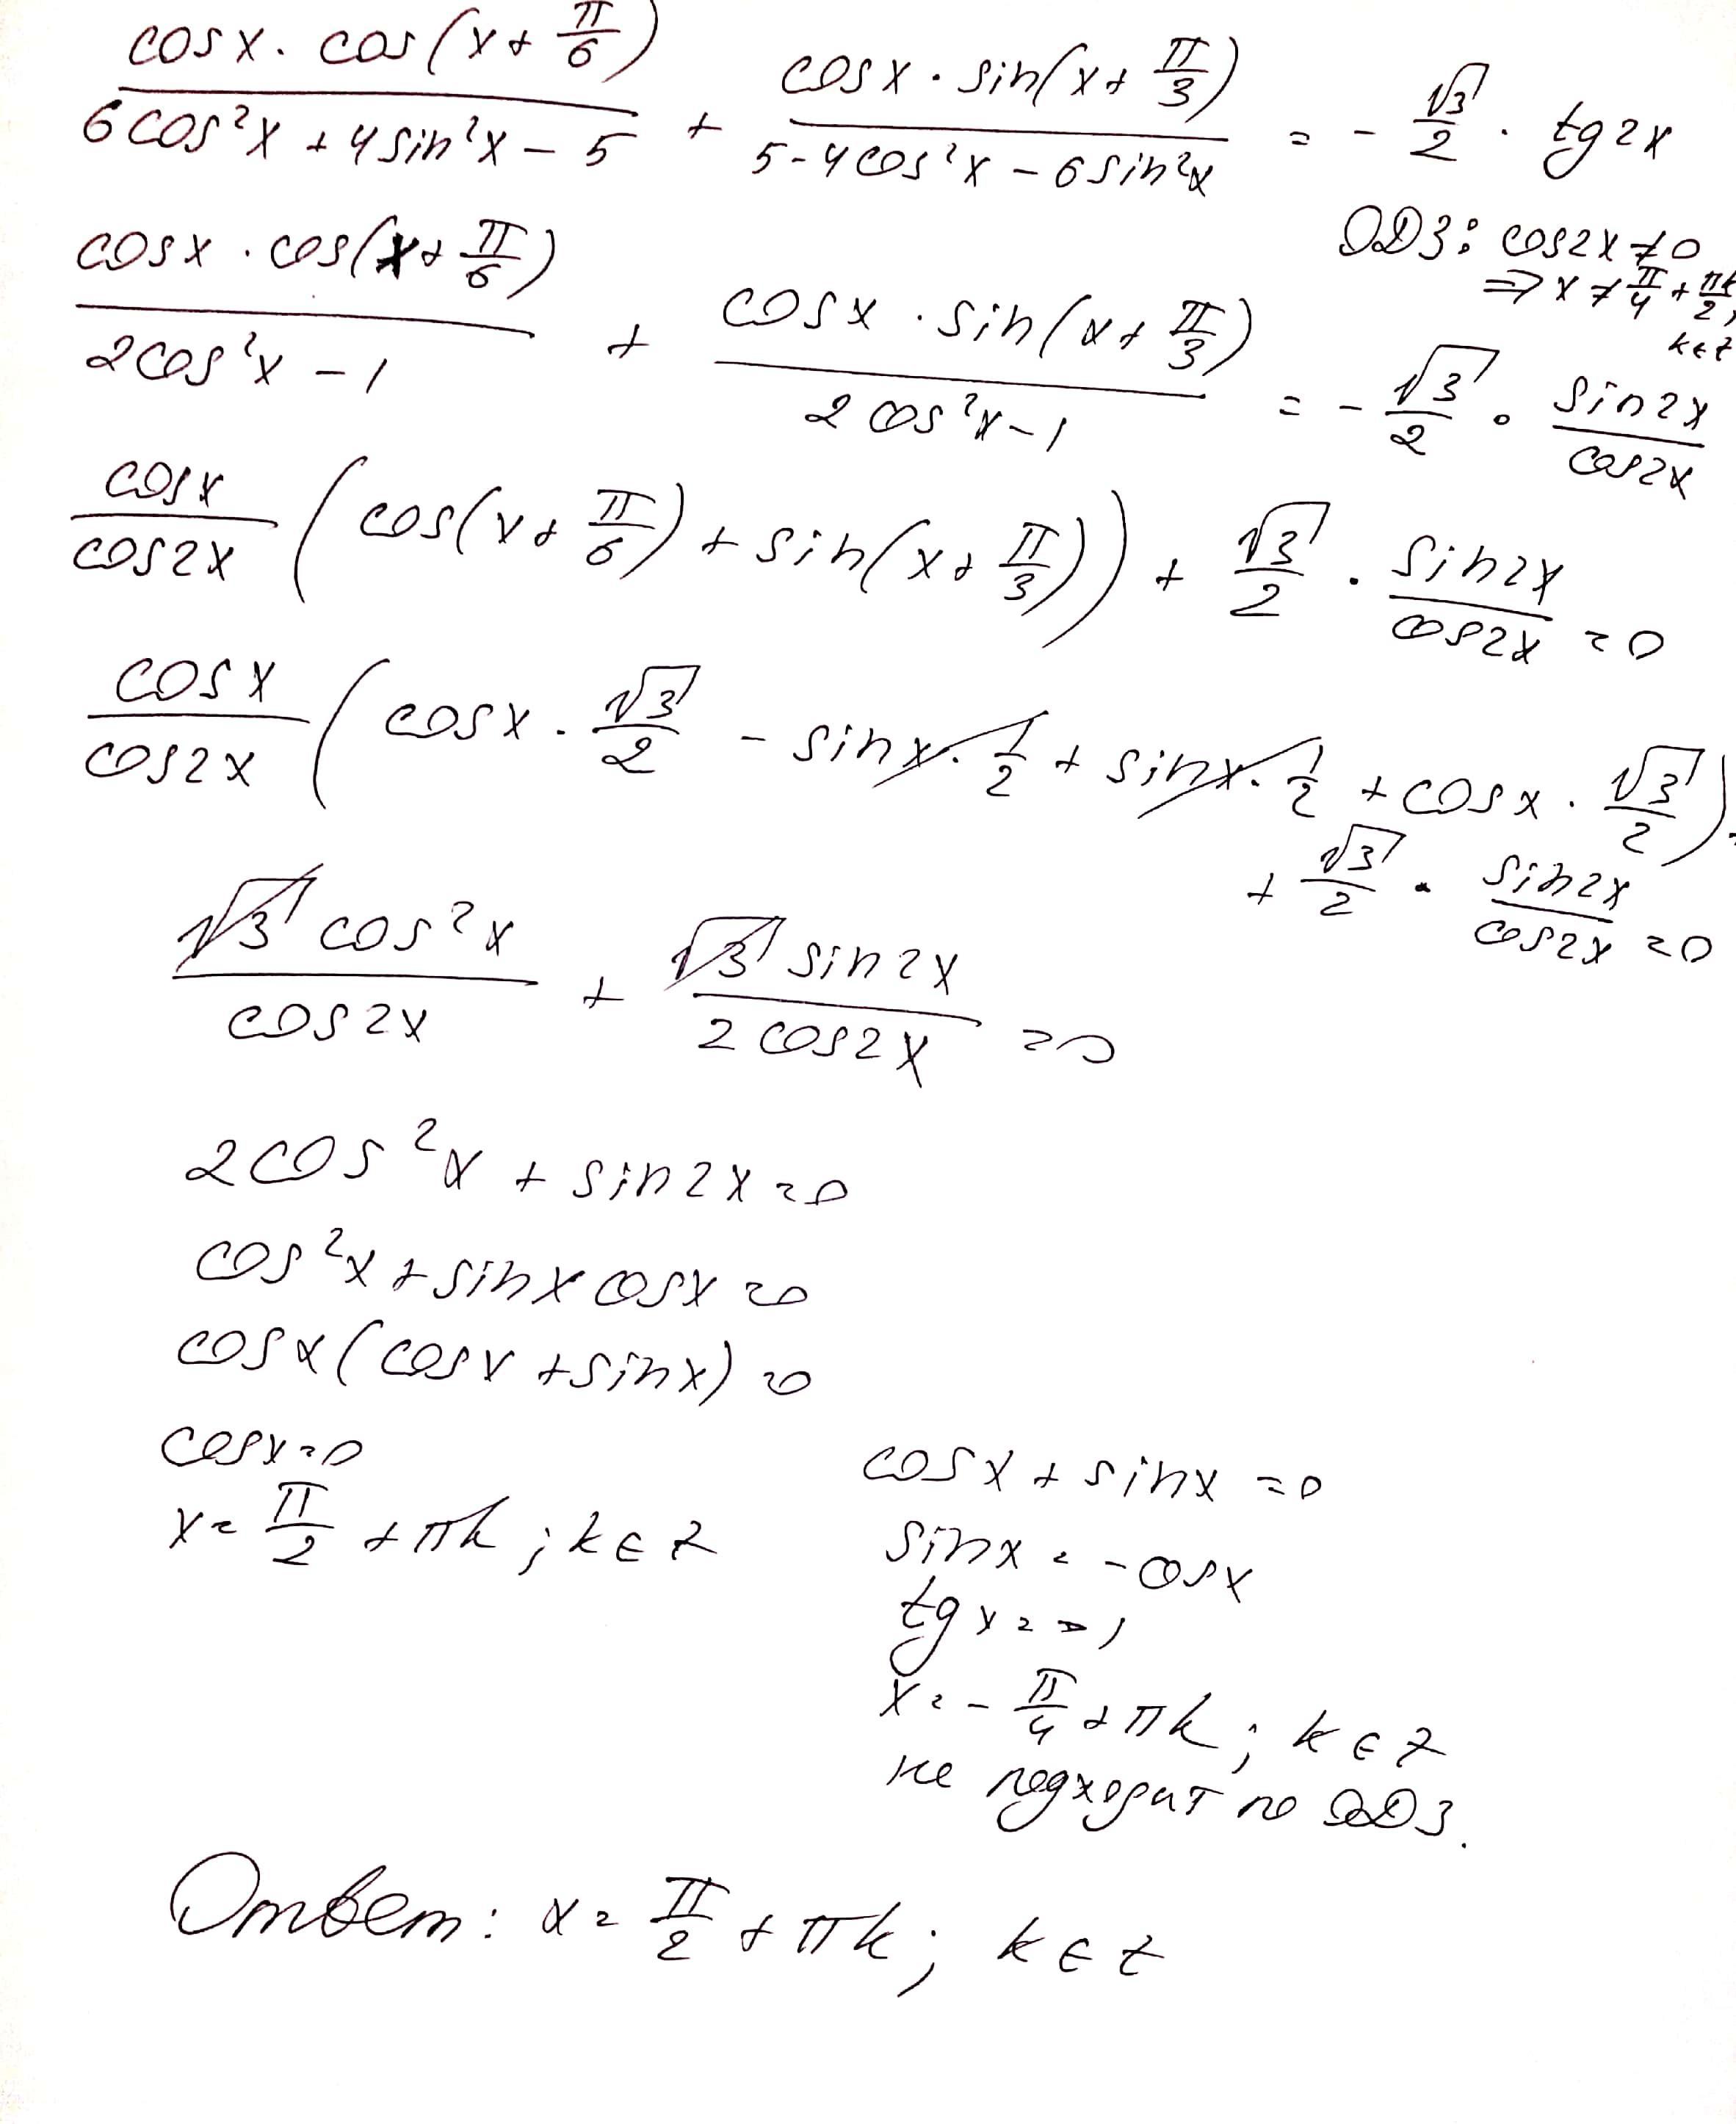 cosx · cos(x + π/6) / (6cos²x + 4sin²x − 5) + cosx · sin(x + π/3) / (5 − 4cos²x − 6sin²x) = − √3/2 · tg2x
ОДЗ: cos2x ≠ 0
⇒ x ≠ π/4 + πk/2,
k∈Z
cosx · cos(x + π/6) / (2cos²x − 1) + cosx · sin(x + π/3) / (2cos²x − 1) = − √3/2 · sin2x/cos2x
cosx/cos2x (cos(x + π/6) + sin(x + π/3)) + √3/2 · sin2x/cos2x = 0
cosx/cos2x (cosx · √3/2 − sinx · 1/2 + sinx · 1/2 + cosx · √3/2) +
+ √3/2 · sin2x/cos2x = 0
√3 cos²x / cos2x + √3 sin2x / 2cos2x = 0
2cos²x + sin2x = 0
cos²x + sinx cosx = 0
cosx(cosx + sinx) = 0
cosx = 0
x = π/2 + πk ; k∈Z
cosx + sinx = 0
sinx = −cosx
tgx = −1
x = − π/4 + πk ; k∈Z
не подходит по ОДЗ.
Ответ: x = π/2 + πk ; k∈Z